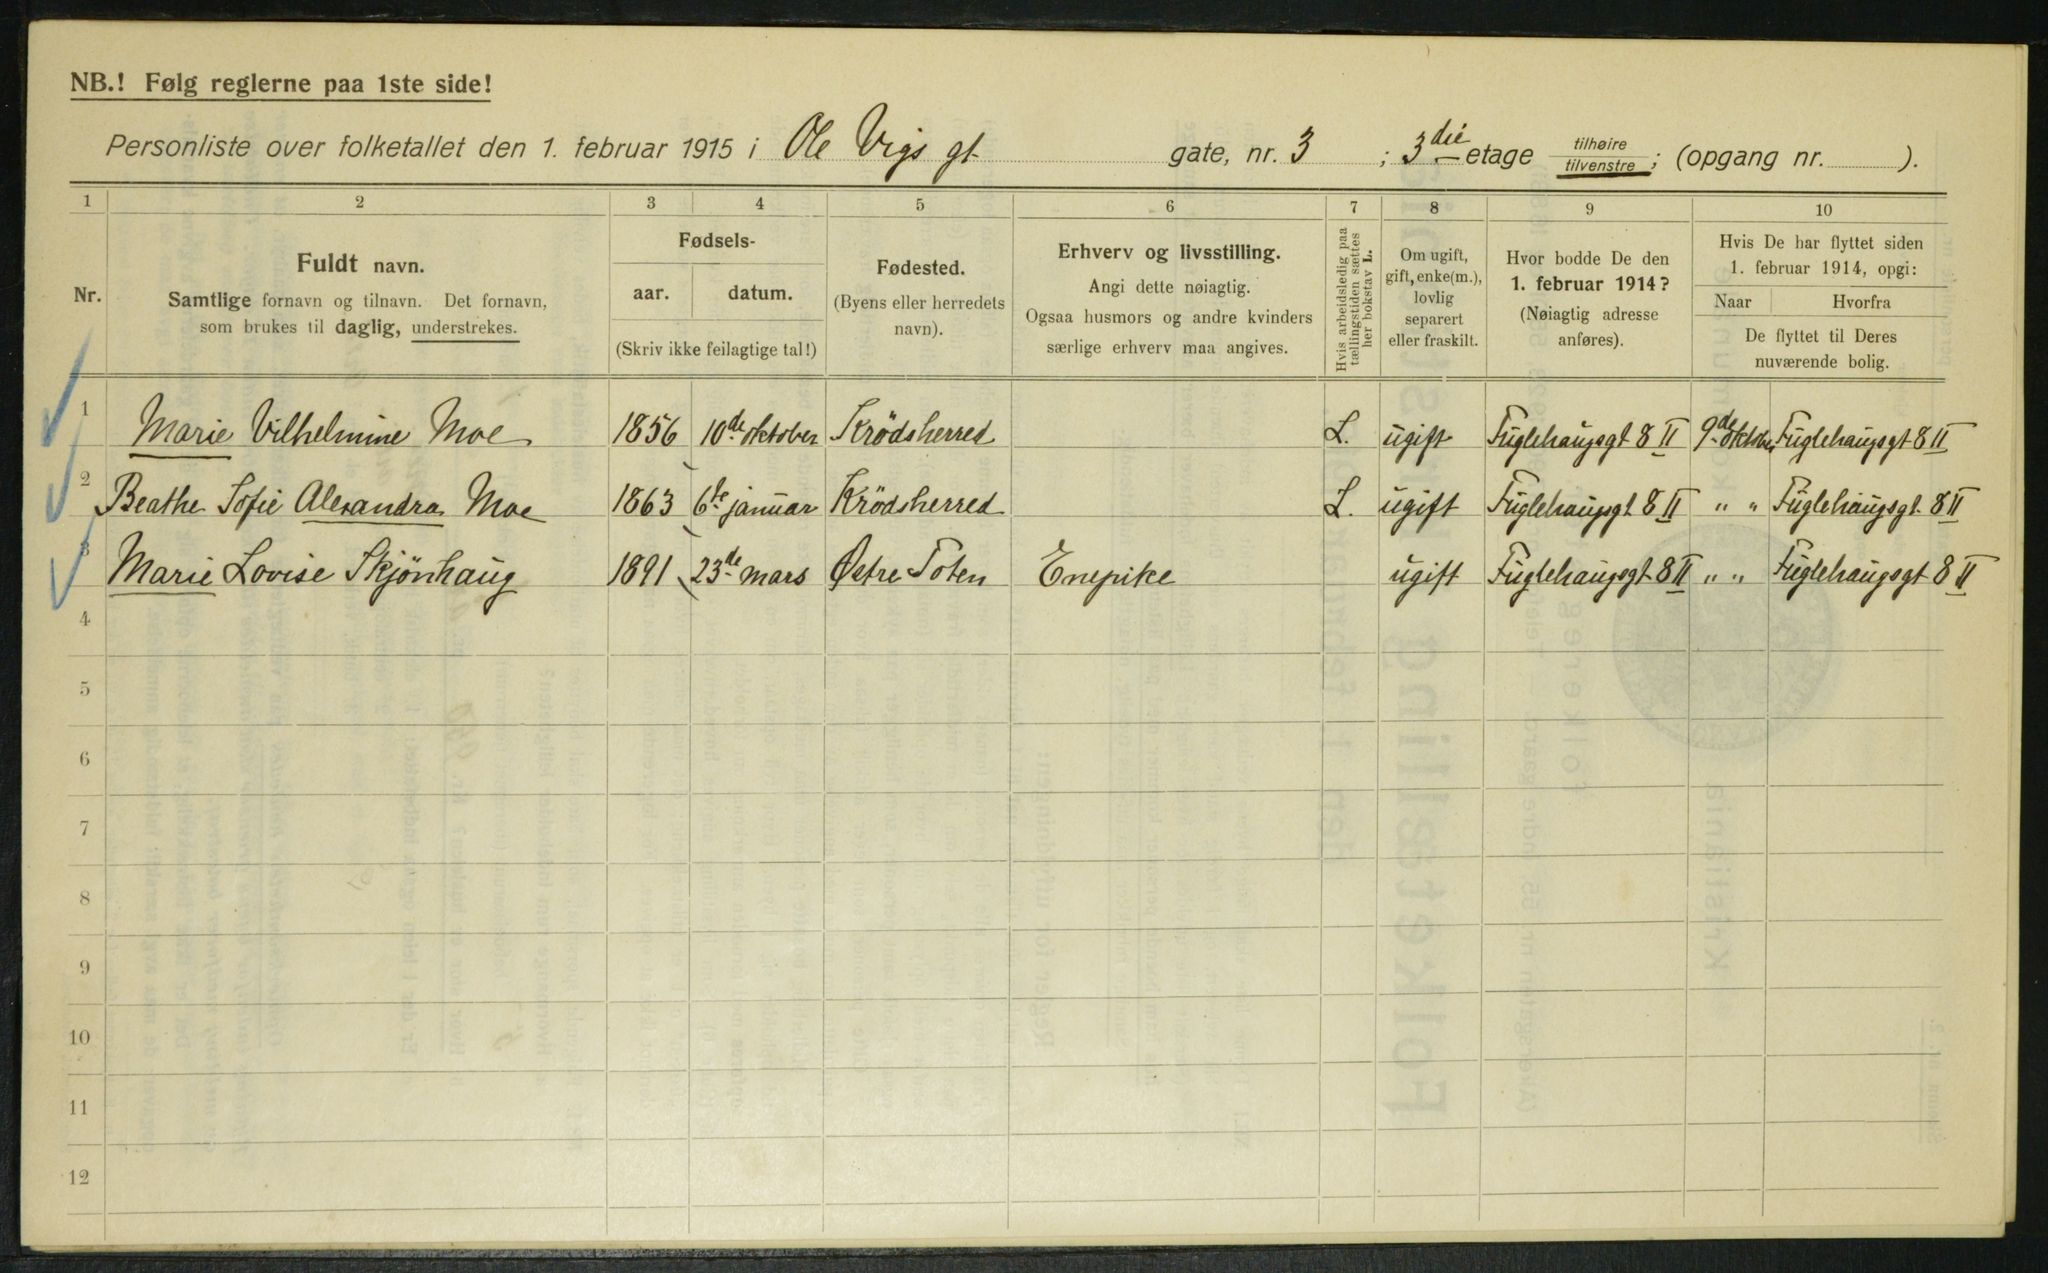 NB.! Følg reglerne paa 1ste side!
Personliste over folketallet den 1. februar 1915 i Ole Vigs gt. gate, nr. 3 ; 3die etage tilhøire tilvenstre ; (opgang nr. ).
1 2 3 4 5 6 7 8 9 10
Nr.
Fuldt navn.
Samtlige fornavn og tilnavn. Det fornavn,
som brukes til daglig, understrekes.
Fødsels-
aar. datum.
(Skriv ikke feilagtige tal!)
Fødested.
(Byens eller herredets
navn).
Erhverv og livsstilling.
Angi dette nøiagtig.
Ogsaa husmors og andre kvinders
særlige erhverv maa angives.
Hvis arbeidsledig paa
tællingstiden sættes
her bokstav L.
Om ugift,
gift, enke(m.),
lovlig
separert
eller fraskilt.
Hvor bodde De den
1. februar 1914?
(Nøiagtig adresse
anføres).
Hvis De har flyttet siden
1. februar 1914, opgi:
Naar Hvorfra
De flyttet til Deres
nuværende bolig.
1 Marie Vilhelmine Moe 1856 10de oktober Krödsherred L. ugift Fuglehaugsgt 8 II 9de oktober Fuglehaugsgt 8 II
2 Beathe Sofie Alexandra Moe 1863 6te januar Krödsherred L. ugift Fuglehaugsgt 8 II " " Fuglehaugsgt 8 II
3 Marie Lovise Skjönhaug 1891 23de mars Østre Toten Enepike ugift Fuglehaugsgt 8 II " " Fuglehaugsgt 8 II
4
5
6
7
8
9
10
11
12